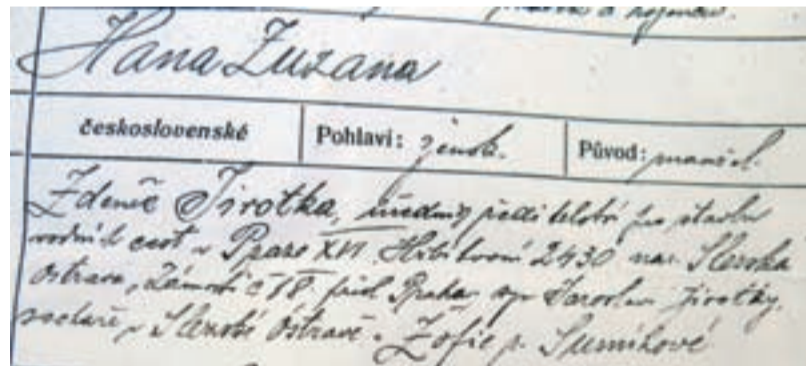 a
Hana Zuzana
československé Pohlaví: žensk. Původ: manžel.
Zdeněk Jirotka, úředník ředitelství pro stavbu
vodních cest v Praze XII. Hřbitovní 2430 nar. Slezská
Ostrava, Zámostí č 18. přísl. Praha, syn Jaroslava Jirotky,
sochaře v Slezské Ostravě a Žofie r.